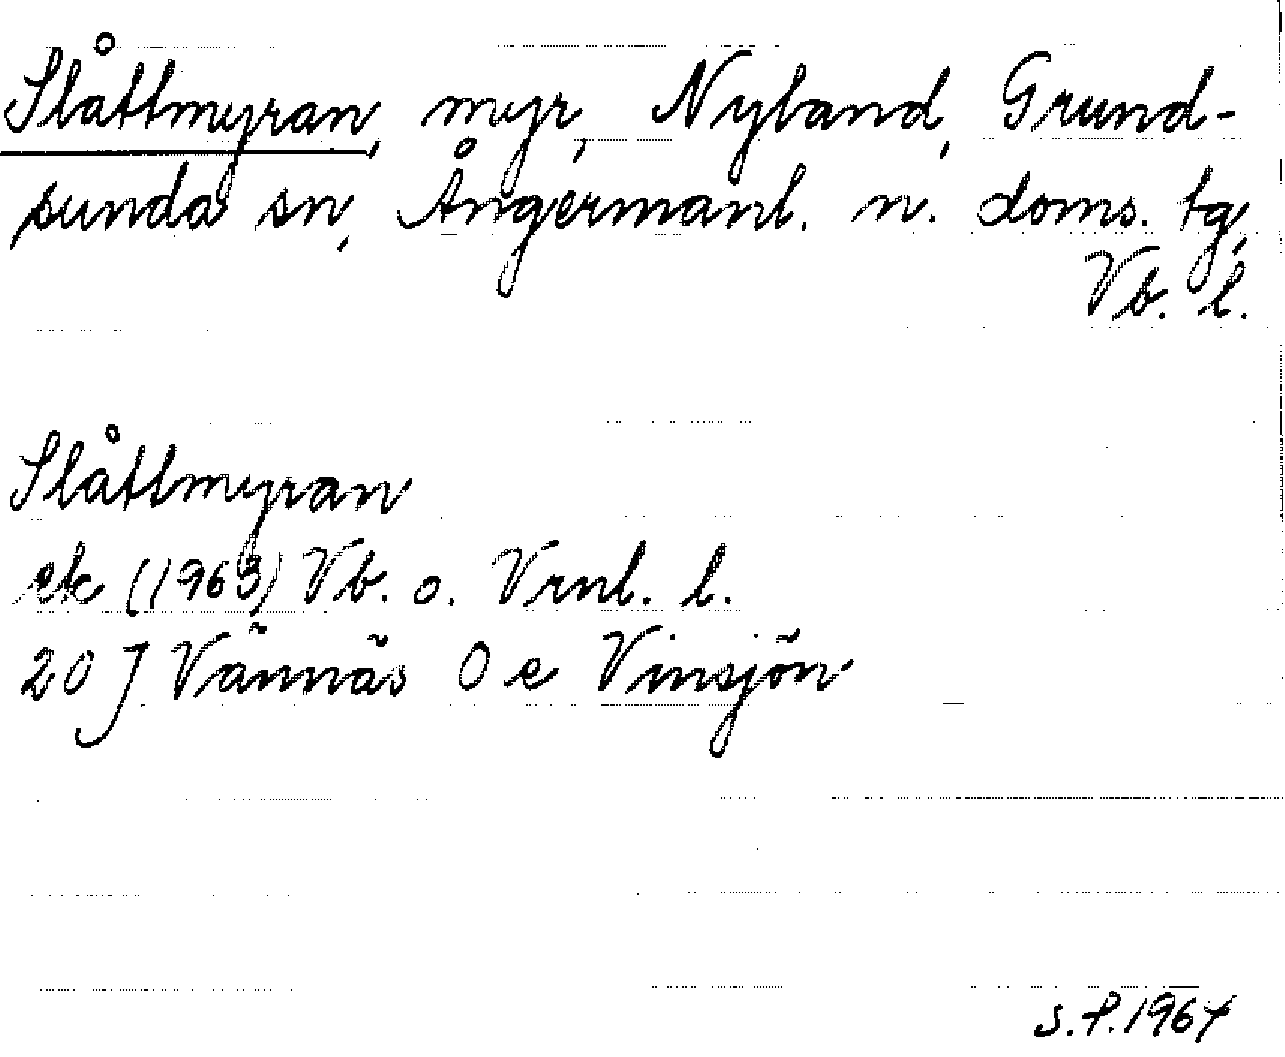 Slåttmyran, myr, Nyland, Grund-
sunda sn, Ångermanl. n. doms. tg,
Vb. l.
Slåttmyran
ek (1963) Vb. o. Vrnl. l.
20 J Vännäs 0 e Vinsjön
S.P. 1964